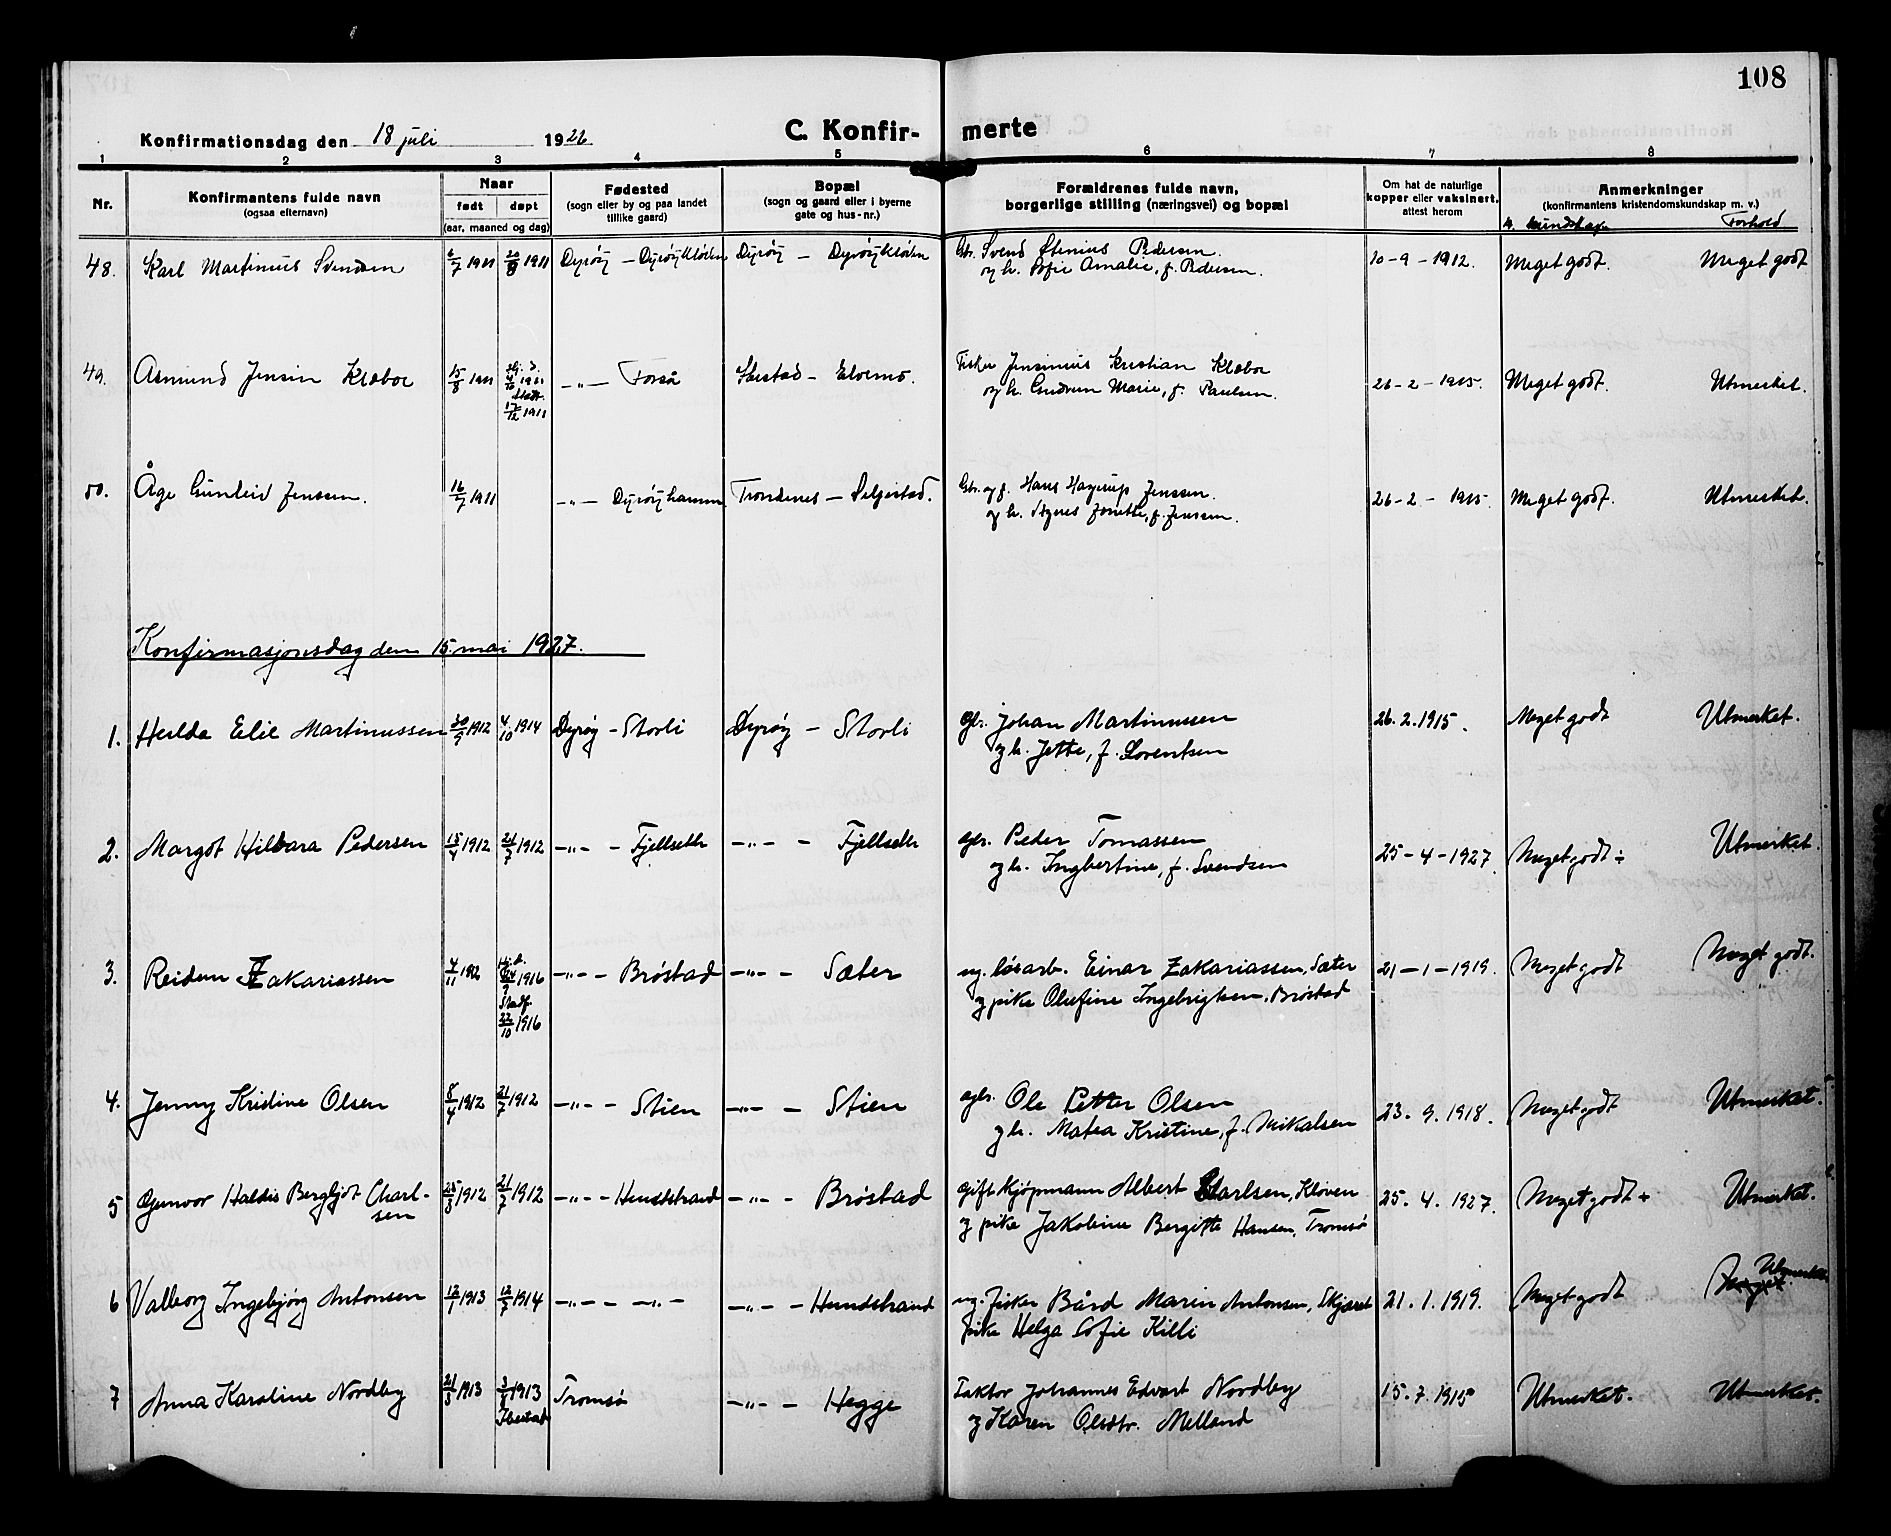 108
Konfirmationsdag den 18 juli 1926
C. Konfir- merte
1 2 3 4 5 6 7 8
Nr.
Konfirmantens fulde navn
(ogsaa efternavn)
Naar
født døpt
(aar, maaned og dag)
Fødested
(sogn eller by og paa landet
tillike gaard)
Bopæl
(sogn og gaard eller i byerne
gate og hus-nr.)
Forældrenes fulde navn,
borgerlige stilling (næringsvei) og bopæl
Om hat de naturlige
kopper eller vaksinert,
attest herom
Anmerkninger
(konfirmantens kristendomskundskap m. v.)
kundskap Forhold
48. Karl Martinius Svendsen 6/7 1911 20/8 1911 Dyröy – Dyröykloven Dyröy – Dyröykloven Gbr. Svend Stenius Pedersen 10-9-1912. Meget godt. Meget godt
og h. Sofie Amalie, f. Pedersen.
49. Asmund Jensin Klæboe 15/8 1911 hj. d. 4/10 1911 Stadf. 17/12 1911 –"– Forså Ibestad – Elvemo. Fisker Jensinius Kristian Klæboe 26-2-1915. Meget godt. Utmerket.
og h. Gudrun Marie, f. Paulsen.
50. Åge Gunleiv Jenssen. 16/7 1911 –"– Dyröyhamn Trondenes – Seljestad. Gbr. og f. Hans Hagerup Jenssen. 26-2-1915. Meget godt. Utmerket.
og h. Agnes Jonette, f. Jenssen.
Konfirmasjonsdag den 15. mai 1927.
1. Hulda Elie Martinussen 30/9 1912 4/10 1914 Dyrøy – Storli Dyrøy – Storli gbr. Johan Martinussen 26.2.1915. Meget godt Utmerket.
og h. Jette, f. Lorentsen
2. Margot Hilvara Pedersen 15/4 1912 21/7 1912 –"– – Fjellseth –"– – Fjellseth gbr. Peder Tomassen 25-4-1927 Meget godt ÷ Utmerket.
og h. Ingbertine, f. Svendsen
3. Reidun Zakariassen 4/11 1912 hj. d. 24/9 1916 Stadf. 22/10 1916 –"– – Brøstad –"– – Sæter ug. løsarb. Einar Zakariassen, Sæter 21-1-1919. Meget godt Meget godt.
og pike Olufine Ingebrigtsen, Brøstad
4. Jenny Kristine Olsen 8/4 1912 21/7 1912 –"– – Stien –"– – Stien gbr. Ole Petter Olsen 23. 9. 1918. Meget godt Utmerket.
og h. Matea Kristine, f. Mikalsen
5 Gunvor Haldis Bergljot Charl- 25/3 1912 21/7 1912 –"– – Hundstrand –"– – Brøstad gift kjøpmann Albert Carlsen, Kløven 25. 4. 1927. Meget godt + Utmerket.
sen og pike Jakobine Bergitte Hansen, Tromsø
6 Valborg Ingebjørg Antonsen 12/1 1913 12/7 1914 –"– – –"– –"– – Hundstrand ug. fisker Bård Marin Antonsen, Skjæret 21. 1. 1919. Meget godt Meget Utmerket
pike Helga Sofie Killi
7 Anna Karoline Nordby 21/3 1913 3/8 1913 Ibestad Tromsø –"– – Hegge Faktor Johannes Edvart Nordby 15. 7. 1915 Utmerket. Utmerket.
og Karen Olsdtr. Melland